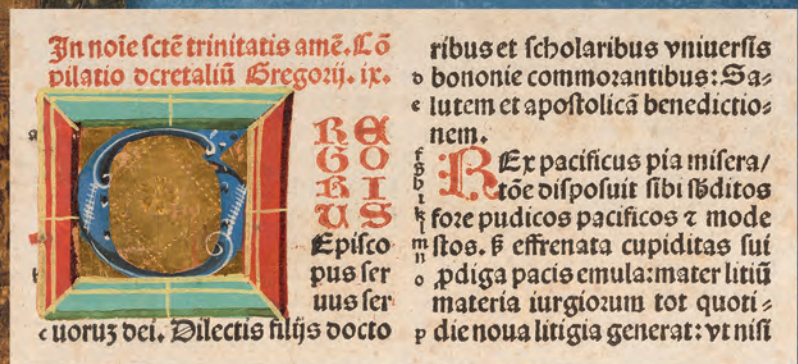 In noīe ſctē trinitatis amē. Cō
pilatio decretaliū Gregorij. ix.
G
RE
GO
RI
US
Epiſco
pus ſer
uus ſer
uoruꝫ dei. Dilectis filijs docto
ribus et ſcholaribus vniuerſis
bononie commorantibus: Sa⸗
lutem et apoſtolicā benedictio⸗
nem.
REx pacificus pia miſera/
tōe diſpoſuit ſibi ſbditos
fore pudicos pacificos ⁊ mode
ſtos. ſꝫ effrenata cupiditas ſui
ꝓdiga pacis emula: mater litiū
materia iurgiorum tot quoti⸗
die noua litigia generat: vt niſi